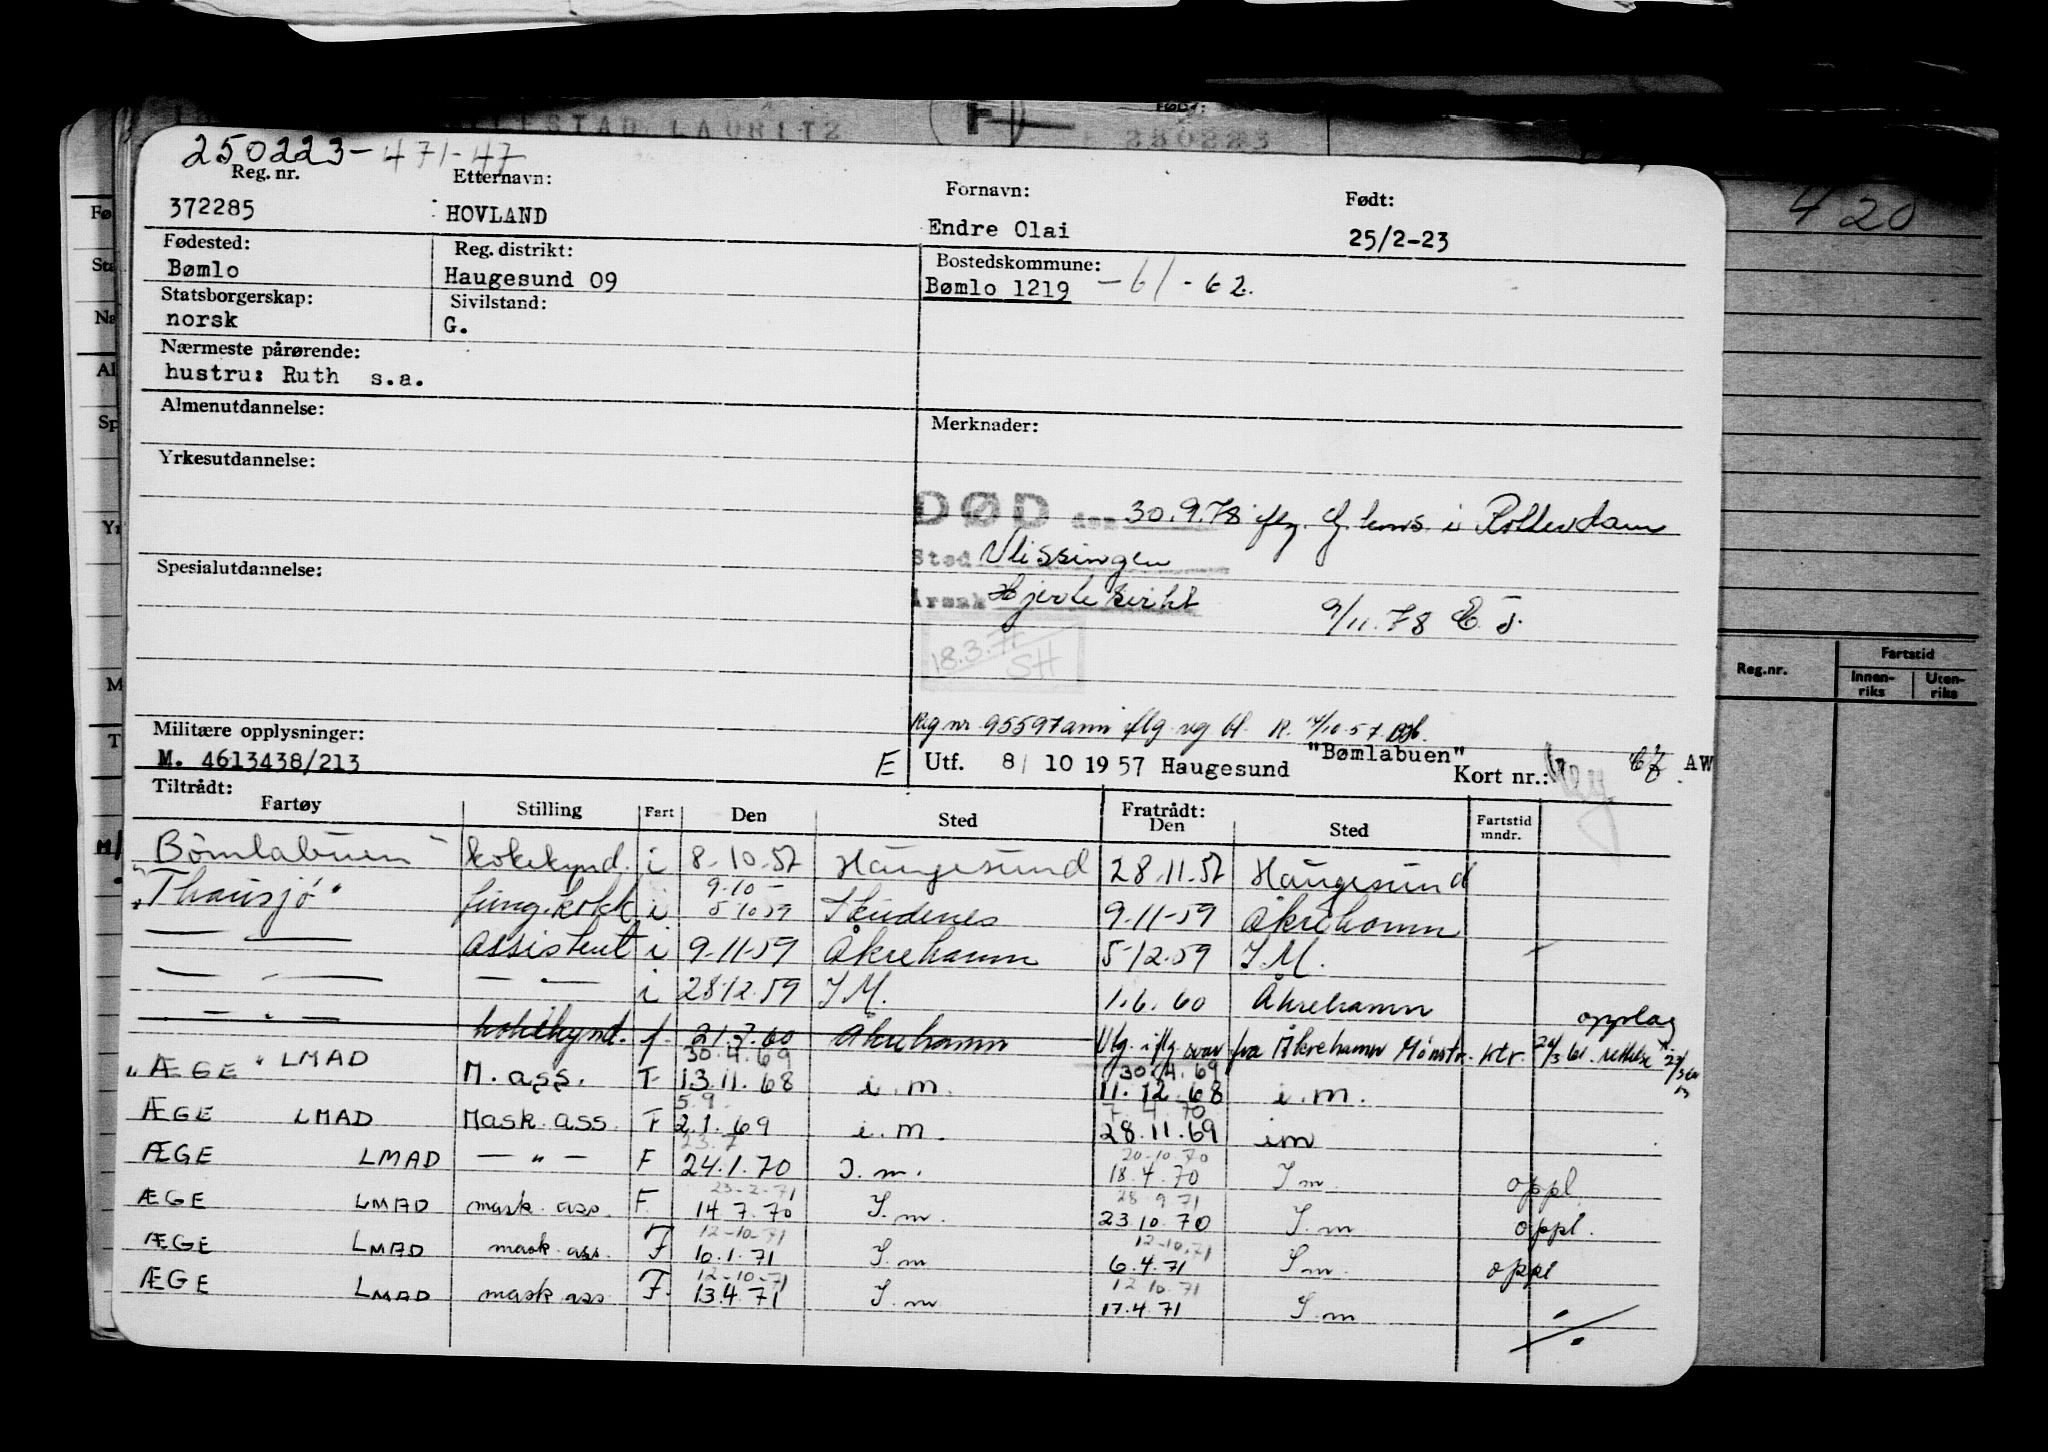 LAURITZ
Født:
F
250223-471-47
Reg. nr.
Etternavn:
Fornavn:
Født:
372285
HOVLAND
Endre Olai
25/2-23
Fødested:
Reg. distrikt:
Bostedskommune:
Bømlo
Haugesund 09
Bømlo 1219 - 61 - 62.
Statsborgerskap:
Sivilstand:
norsk
G.
Nærmeste pårørende:
hustru: Ruth s.a.
Almenutdannelse:
Merknader:
Yrkesutdannelse:
DØD den 30.9.78 iflg. g. kons. i Rotterdam
Sted Vlissingen
Spesialutdannelse:
Årsak Hjertesvikt
9/11.78 E.J.
18.3.71
SH
Reg nr 95597 ann iflg. reg bl. R. 14/10-57
Militære opplysninger:
M. 4613438/213
E
Utf. 8/ 10 1957 Haugesund "Bømlabuen"
Kort nr.:
AW
Tiltrådt:
Fratrådt:
Fartøy Stilling Fart Den Sted Den Sted Fartstid mndr.
Bömlabuen kokekynd. i 8.10.57 Haugesund 28.11.57 Haugesund
9.10 -
"Thausjö" fung. kokk i 5 10 59 Skudenes 9-11-59 Åkrehamn
— — assistent i 9-11-59 Åkrehamn 5-12-59 I.M.
— — — — i 28-12-59 I M. 1.6.60 Åkrehamn
opplag
— " — kokekynd. f. 21.7.60 Åkrehamn Utg. iflg. svar fra Åkrehamn Mønstr. ktr. 20/3 61. rettelse
30.4.69 30.4.69
"ÆGE" LMAD M. ass. T 13.11.68 i.m. 11.12.68 i.m.
5.9. 7.4.70
ÆGE LMAD Mask. ass. F 2.1.69 i.m. 28.11.69 im
23.7 20-10.70
ÆGE LMAD — " — F 24.1.70 I.m. 18.4.70 I m oppl
23-2-71 28 9 71
ÆGE LMAD mask. ass. F. 14.7.70 I.m. 23.10.70 I.m oppl.
12-10-71 12-10.71
ÆGE LMAD mask. ass. F 10.1.71 I.m 6.4.71 I m. oppl
12-10-71 12 10.71
ÆGE LMAD mask ass F. 13.4.71 I.m 17.4.71 I.m
420
Reg.nr.
Fartstid
Innen-
riks
Uten-
riks